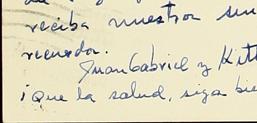 reciba nuestro
recuerdo.
Juan Gabriel y
¡Que la salud, siga